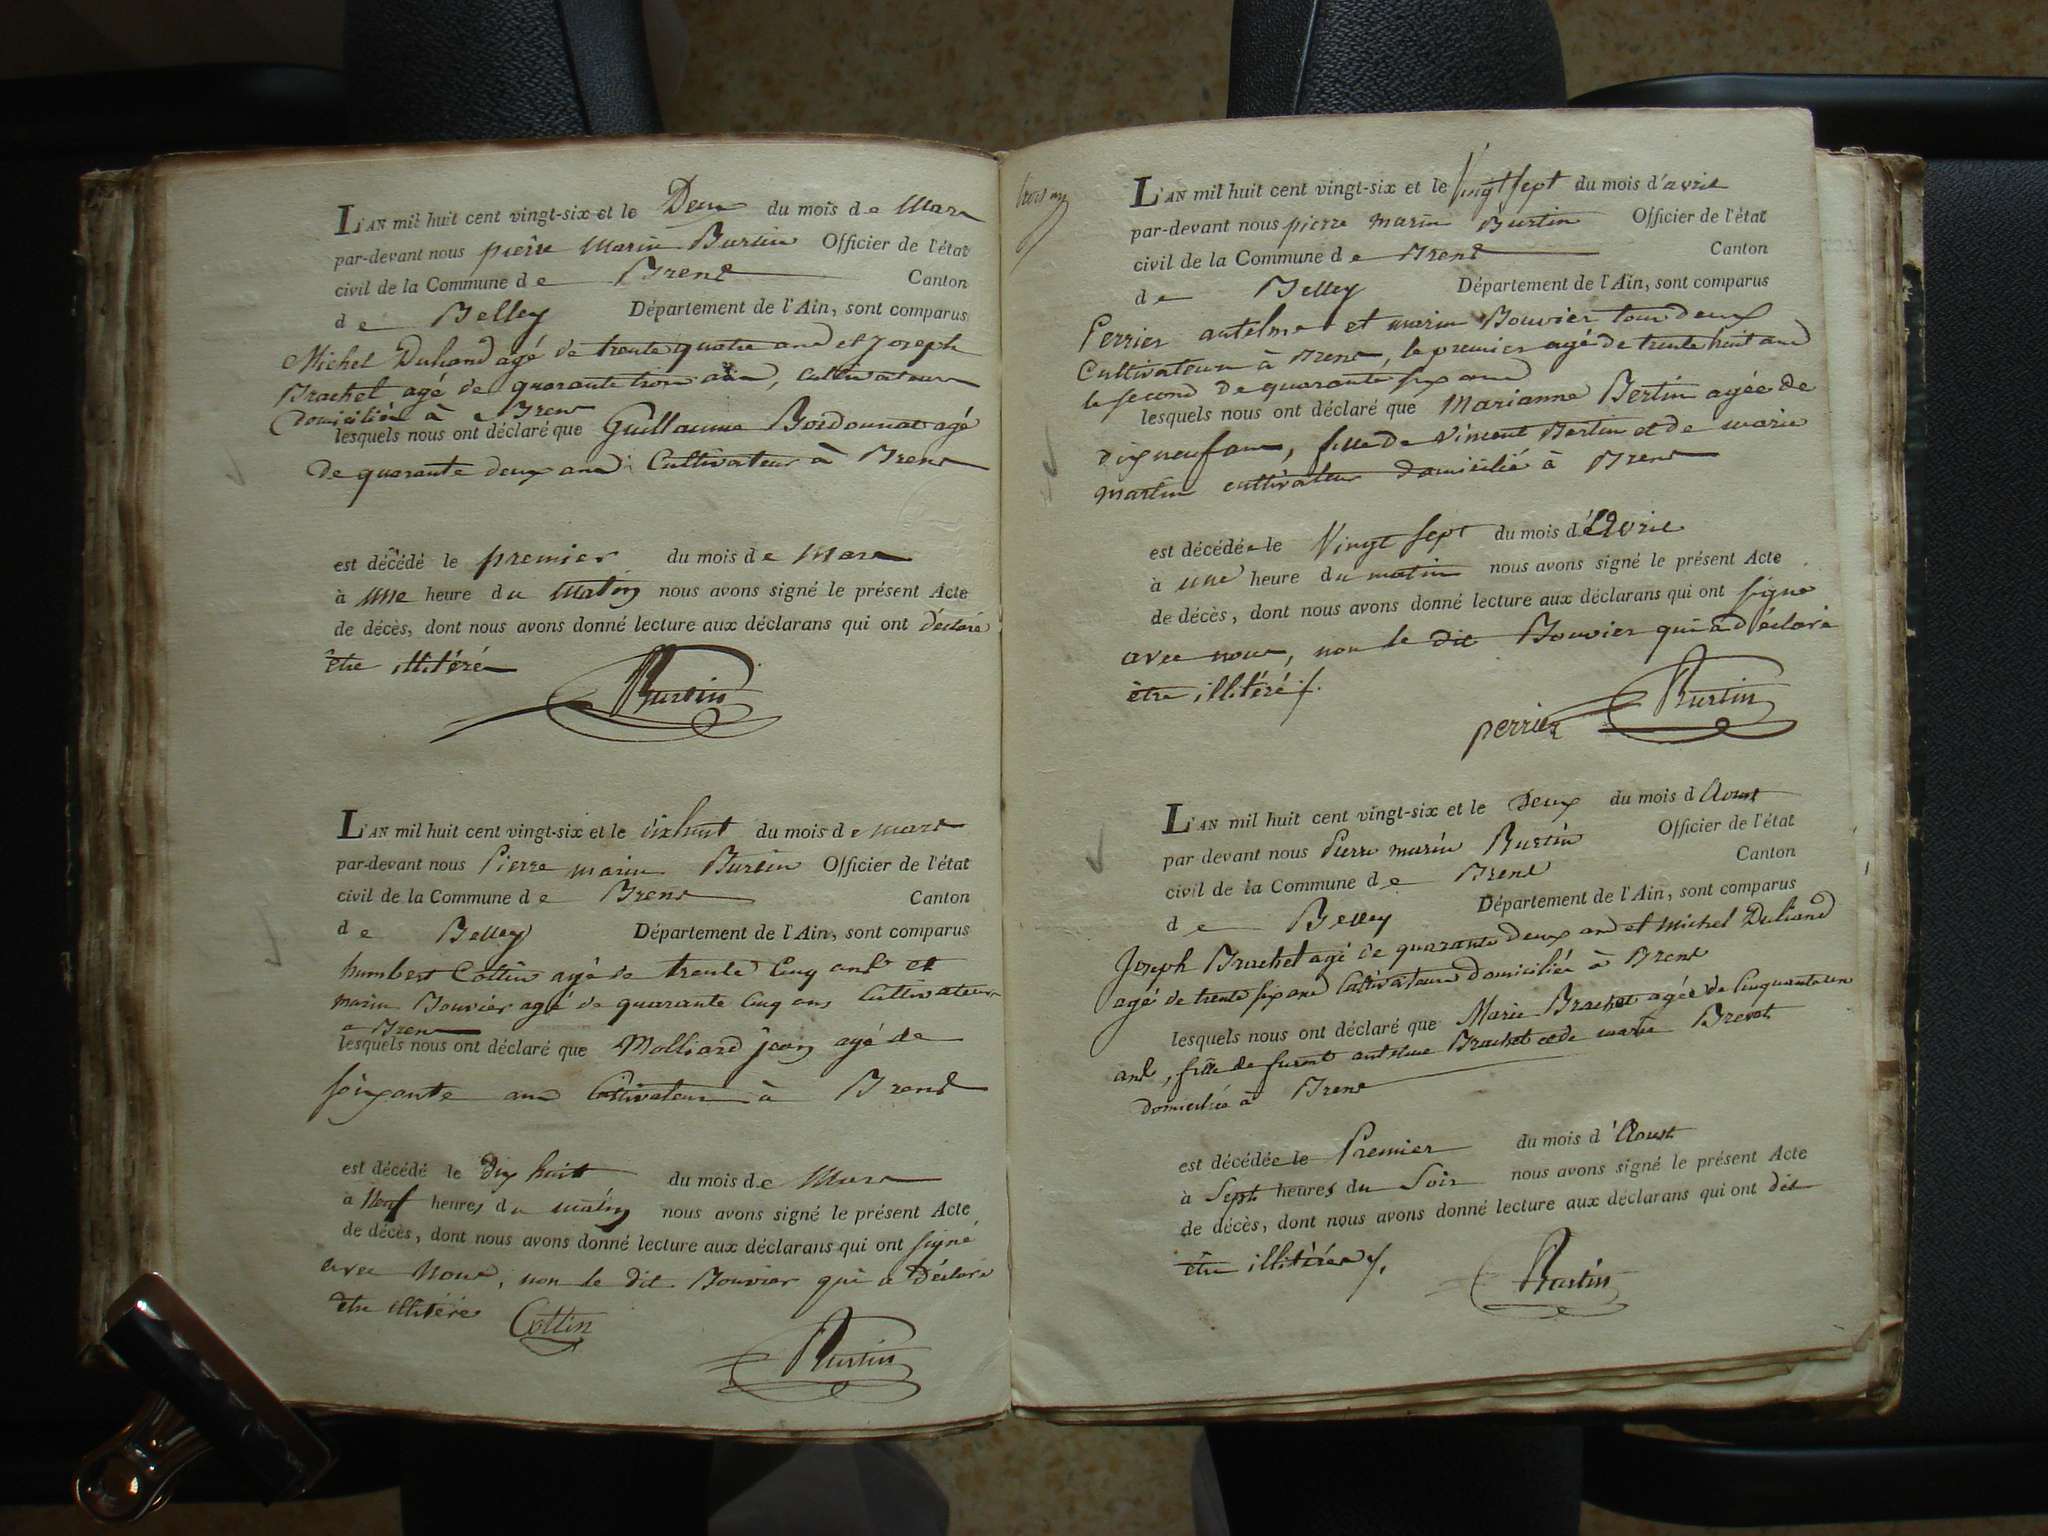 L'AN mil huit cent vingt-six et le Deux du mois de Mars
par-devant nous pierre Marin Burtin Officier de l'état
civil de la Commune de Brens Canton
de Belley Département de l'Ain, sont comparus
Michel Duhand agé de trente quatre ans et Joseph
Brachet agé de quarante trois ans, cultivateurs
domiciliés à Brens
lesquels nous ont déclaré que Guillaume agé
de quarante deux ans Cultivateur à Brens
est décédé le premier du mois de Mars
à une heure du Matin nous avons signé le présent Acte
de décès, dont nous avons donné lecture aux déclarans qui ont déclaré
être illitéré
Burtin
L'AN mil huit cent vingt-six et le dixhuit du mois de mars
par-devant nous Pierre marin Burtin Officier de l'état
civil de la Commune de Brens Canton
de Belley Département de l'Ain, sont comparus
humbert Cottin agé de trente Cinq ans et
marin Bouvier agé de quarante Cinq ans Cultivateurs
a Brens
lesquels nous ont déclaré que Molliard jean agé de
soixante ans Cultivateur à Brens
est décédé le dix huit du mois de Mars
à Neuf heures du matin nous avons signé le présent Acte
de décès, dont nous avons donné lecture aux déclarans qui ont signé
avec Nous, non le dit Bouvier qui a Déclaré
être illitéré Cottin
Burtin
L'AN mil huit cent vingt-six et le Vingt sept du mois d'avril
par-devant nous pierre marin Burtin Officier de l'état
civil de la Commune de Brens Canton
de Belley Département de l'Ain, sont comparus
Perrier antelme et marin Bouvier tous deux
Cultivateurs à Brens, le premier agé de trente huit ans
le second de quarante six ans
lesquels nous ont déclaré que Marianne Bertin agée de
dix neuf ans, fille de Vincent Bertin et de marie
martin cultivateur domicilié à Brens
est décédée le Vingt sept du mois d'Avril
à une heure du matin nous avons signé le présent Acte
de décès, dont nous avons donné lecture aux déclarans qui ont signé
avec nous, non le dit Bouvier qui a déclaré
être illitéré /.
perrier Burtin
L'AN mil huit cent vingt-six et le Deux du mois d Aoust
par devant nous Pierre marin Burtin Officier de l'état
civil de la Commune de Brens Canton
de Belley Département de l'Ain, sont comparus
Joseph Brachet agé de quarante deux ans et Michel Duhand
agé de trente six ans Cultivateurs domiciliés à Brens
lesquels nous ont déclaré que Marie Brachet agée de Cinquante un
ans, fille de furent antelme Brachet et de marie
domiciliée à Brens
est décédée le Premier du mois d'Aoust
à Sept heures du Soir nous avons signé le présent Acte
de décès, dont nous avons donné lecture aux déclarans qui ont dit
être illitérés /.
Burtin